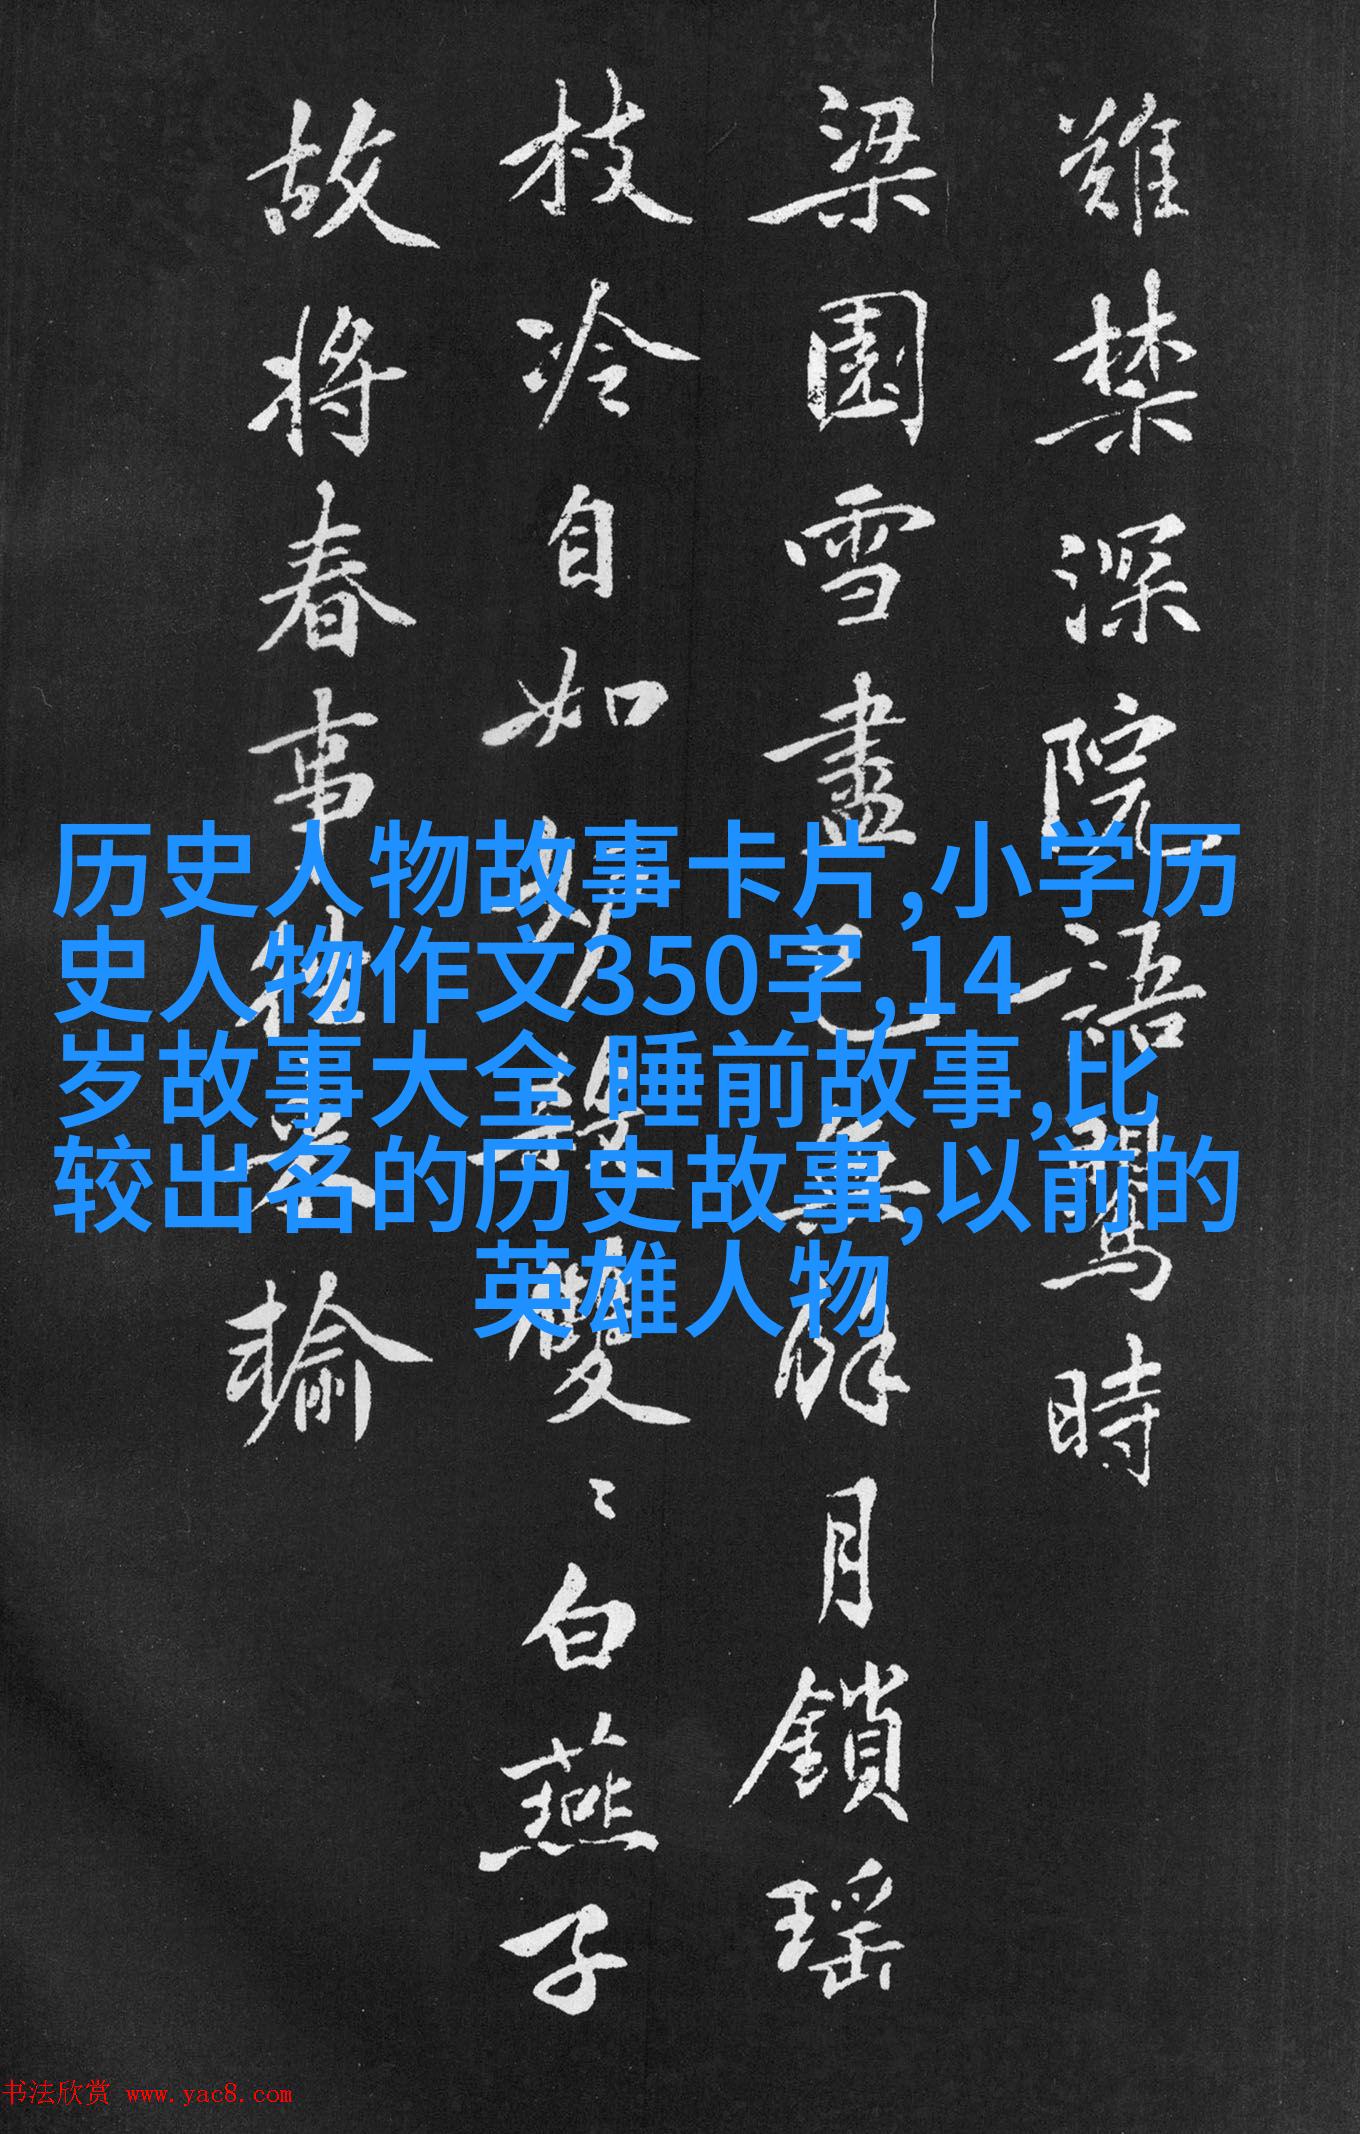 難禁深院語關鶯時
梁園雪盡已無餘月鎖瑶
枝冷自如好與雙〻白燕子
故將春事徃來輸
历史人物故事卡片,小学历
史人物作文350字,14
岁故事大全 睡前故事,比
较出名的历史故事,以前的
英雄人物
书法欣赏 www.yac8.com